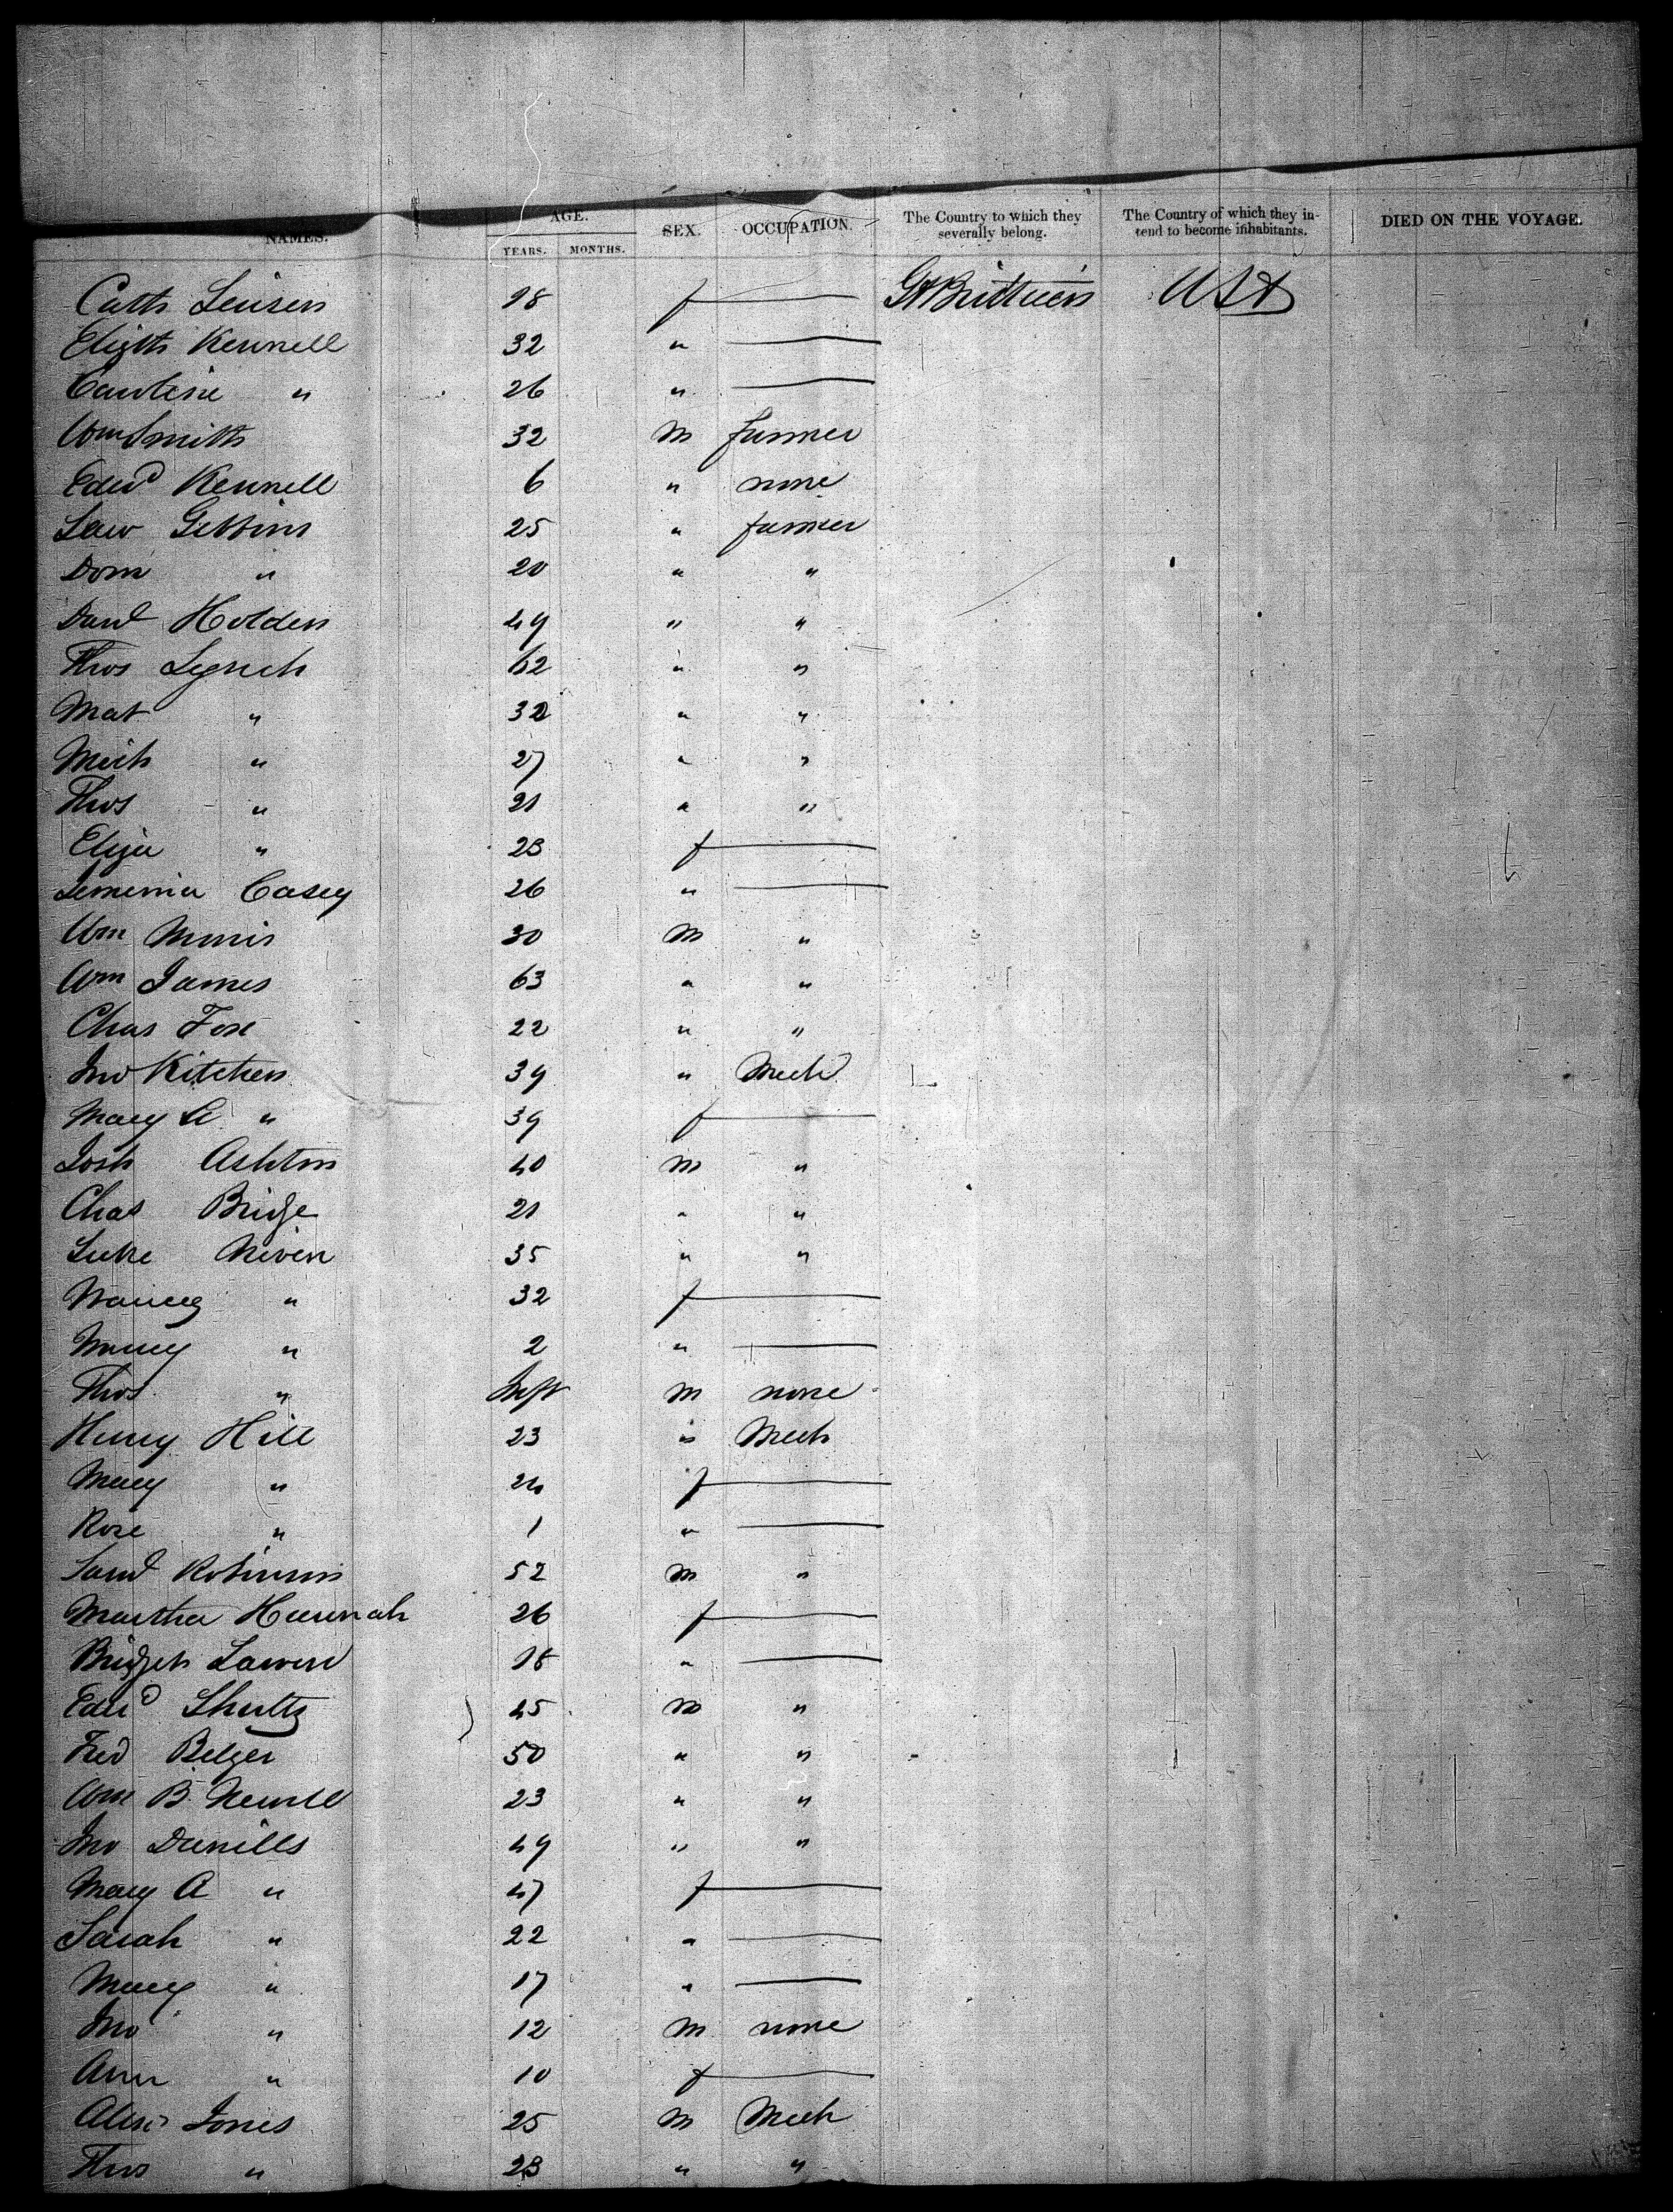 NAMES. AGE. YEARS. MONTHS. SEX. OCCUPATION. The Country to which they severally belong. The Country of which they intend to become inhabitants. DIED ON THE VOYAGE.
Cath 18 f Gt Brittain USA
Elizth Kennell 32 "
Caroline " 26 "
Wm Smith 32 M farmer
Edwd Kennell 6 " none
Law Gibbins 25 " farmer
Dom " 20 " "
Danl Holden 49 " "
Thos Lynch 62 " "
Mat " 32 " "
Mich " 27 " "
Thos " 21 " "
Eliza " 23 f
Jemima Casey 26 "
Wm Morris 30 M "
Wm James 63 " "
Chas Fox 22 " "
Jno Kitchen 39 " Mech
Mary A " 39 f
Josh Ashton 40 M "
Chas Bridge 21 " "
Luke Niven 35 " "
Nancy " 32 f
Nancy " 2 "
Thos " Inft M none
Henry Hill 23 " Mech
Mary " 24 f
Rose " 1 "
Saml Robinson 52 M "
Martha Hannah 26 f
Bridget 18 "
Edwd Shultz 45 M "
Fred Belger 50 " "
Wm B Newell 23 " "
Jno Daniells 49 " "
Mary A " 47 f
Sarah " 22 "
Mary " 17 "
Jno " 12 M none
Ann " 10 f
Alexr Jones 25 M Mech
Thos " 23 " "